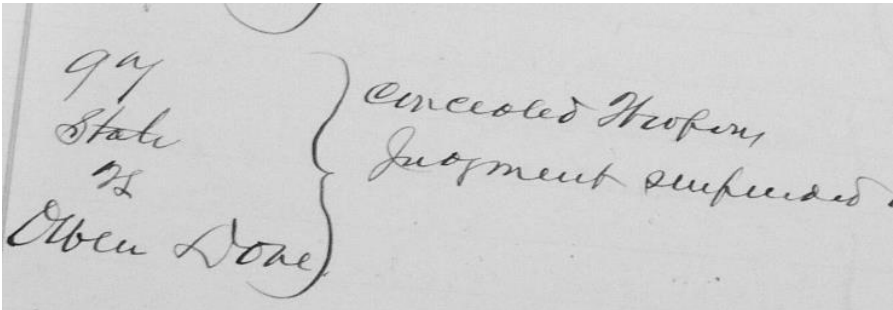 97
State
vs
Owen Done
Concealed Weapons
Judgment suspended